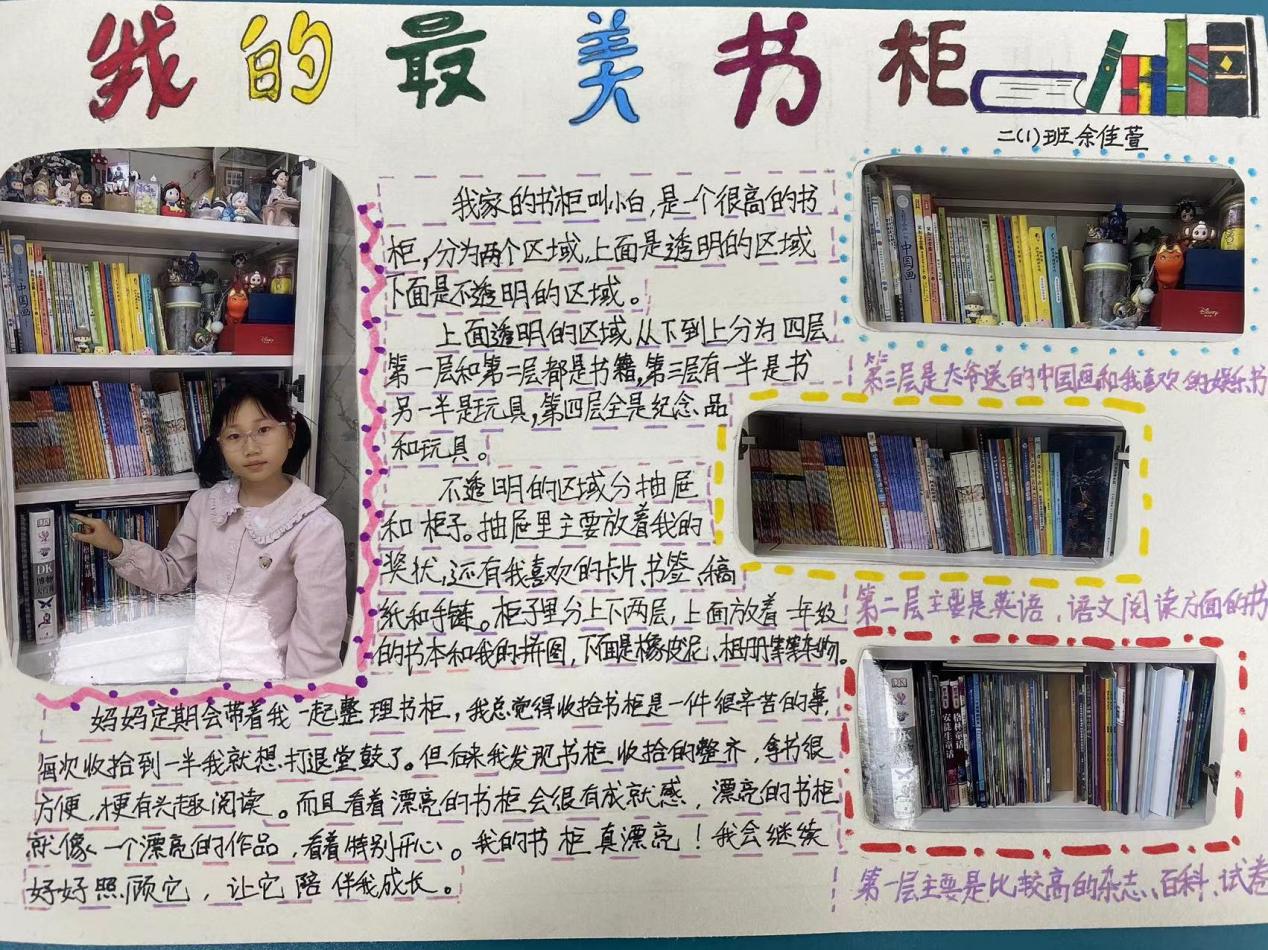 我的最美书柜
二(1)班余佳萱
我家的书柜叫小白,是一个很高的书
柜,分为两个区域,上面是透明的区域
下面是不透明的区域。
上面透明的区域从下到上分为四层
第一层和第二层都是书籍,第三层有一半是书
另一半是玩具,第四层全是纪念品
和玩具。
不透明的区域分抽屉
和柜子。抽屉里主要放着我的
奖状,还有我喜欢的卡片、书签、稿
纸和手链。柜子里分上下两层,上面放着一年级
的书本和我的拼图,下面是橡皮泥、相册等等杂物。
妈妈定期会带着我一起整理书柜,我总觉得收拾书柜是一件很辛苦的事,
每次收拾到一半我就想打退堂鼓了。但后来我发现书柜收拾的整齐,拿书很
方便,更有兴趣阅读。而且看着漂亮的书柜会很有成就感,漂亮的书柜
就像一个漂亮的作品,看着特别开心。我的书柜真漂亮!我会继续
好好照顾它,让它陪伴我成长。
第三层是大爷送的中国画和我喜欢的娱乐书
第二层主要是英语、语文阅读方面的书
第一层主要是比较高的杂志、百科、试卷
中国画
Disney
DK
博物
DK
安徒生童话
格林童话